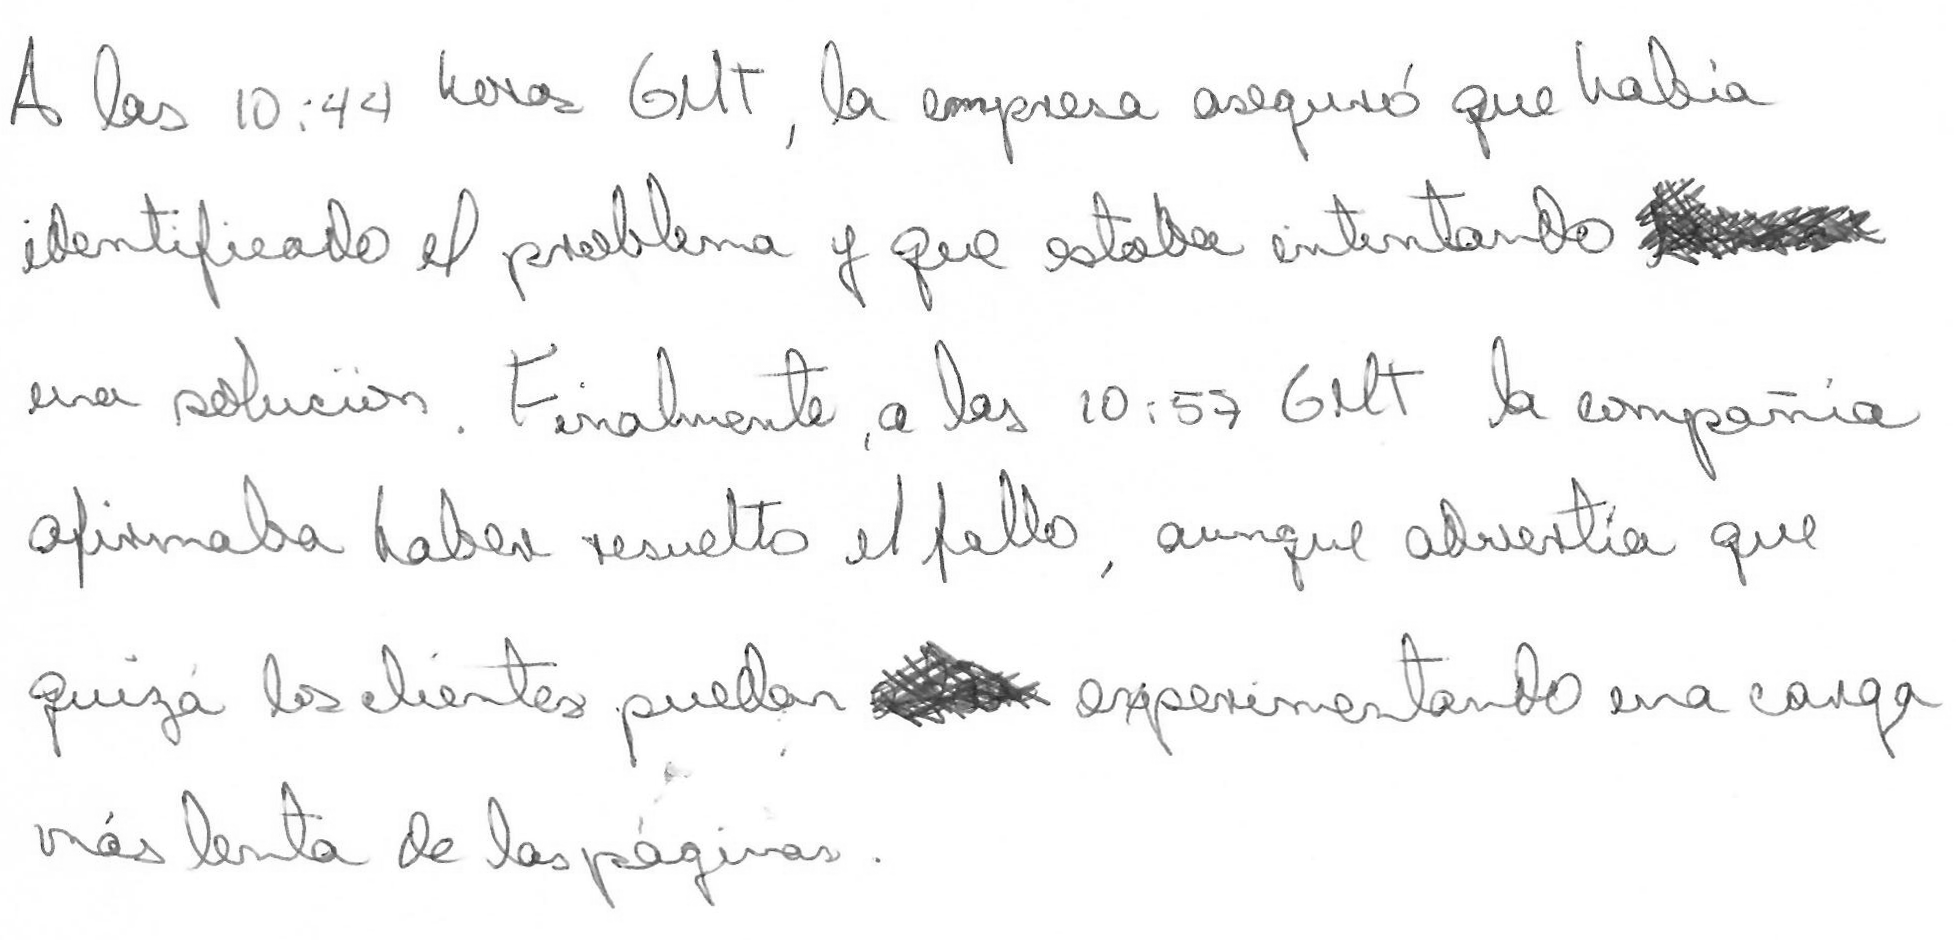 A las 10:44 horas GMT, la empresa aseguró que había
identificado el problema y que estaba intentando
una solución. Finalmente, a las 10:57 GMT la compañía
afirmaba haber resuelto el fallo, aunque advertía que
quizá los clientes puedan experimentando una carga
más lenta de las páginas.